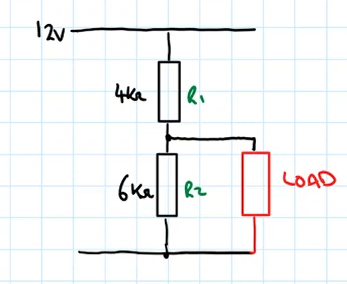 12V
4KΩ R1
6KΩ R2
LOAD